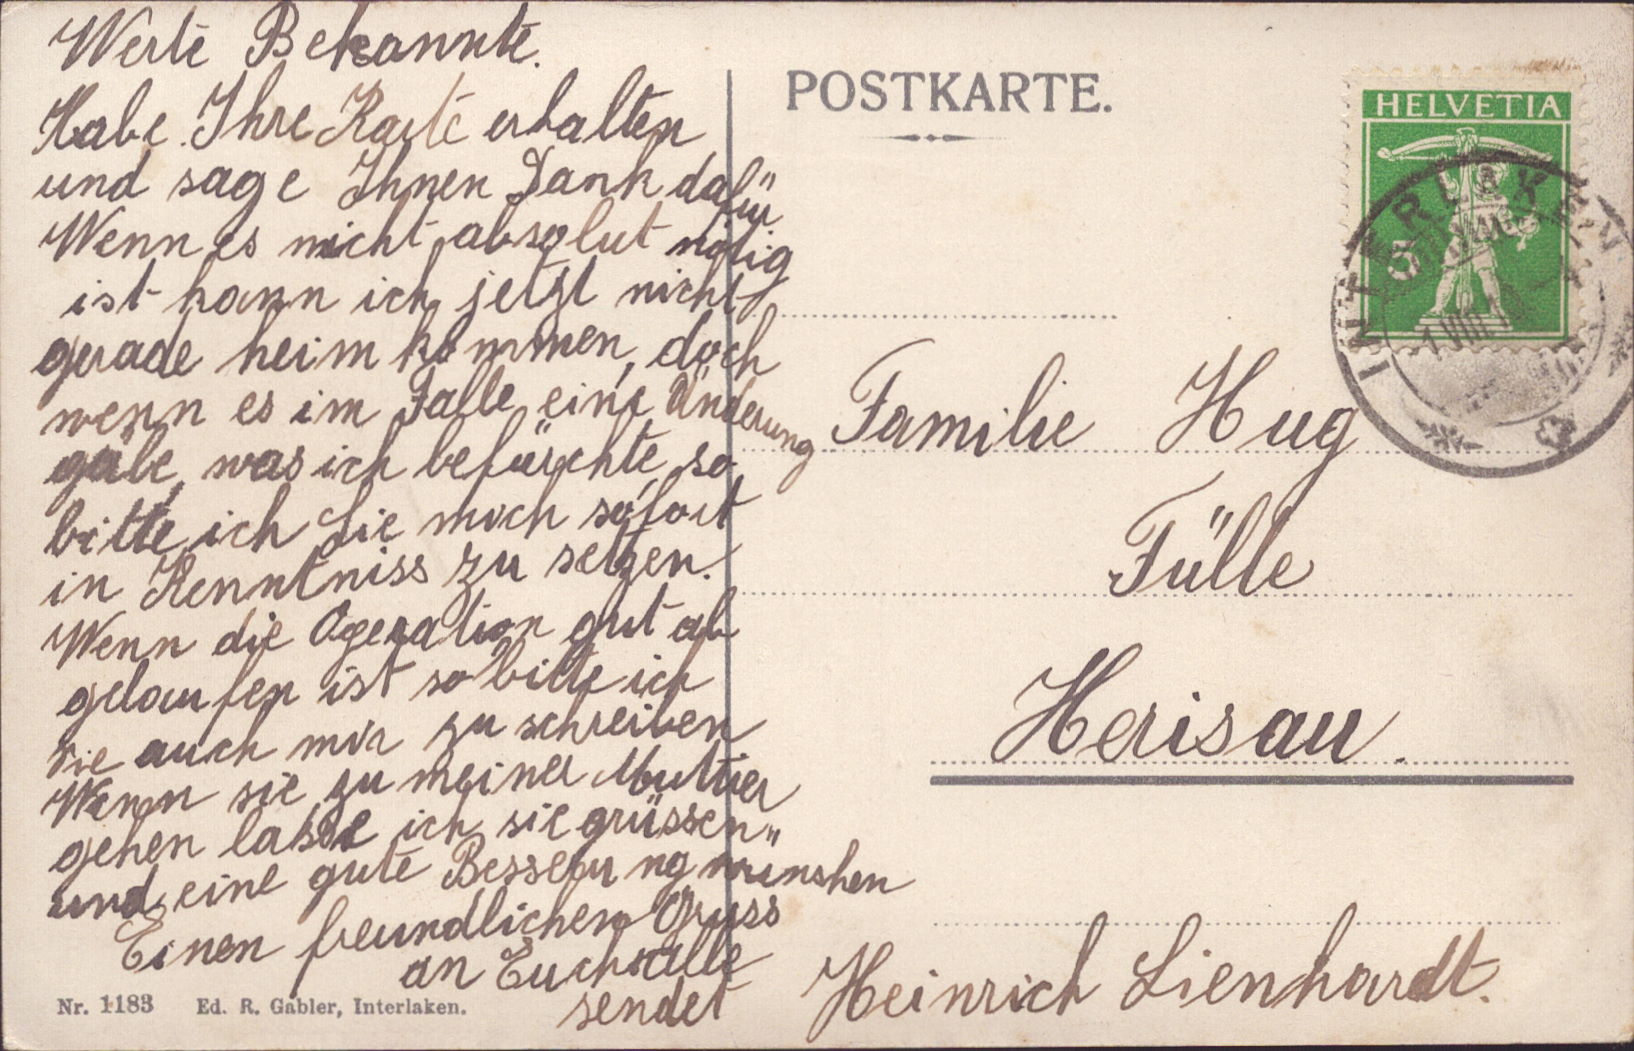 Werte Bekannte.
Habe Ihre Karte erhalten
und sage Ihnen Dank dafür
Wenn es nicht absolut nötig
ist kann ich jetzt nicht
gerade heim kommen, doch
wenn es im Falle eine Änderung
gäbe, was ich befürchte, so
bitte ich Sie mich sofort
in Kenntniss zu setzen.
Wenn die Operation gut ab
gelaufen ist so bitte ich
Sie auch mir zu schreiben
Wenn sie zu meiner Mutter
gehen lasse ich sie grüssen
und eine gute Besserung wünshen
Einen freundlichen Gruss
an Euch alle
sendet Heinrich Lienhardt.
Nr. 1183 Ed. R. Gabler, Interlaken.
POSTKARTE.
HELVETIA
5
INTERLAKEN
1 VIII
Familie Hug
Fülle
Herisau.